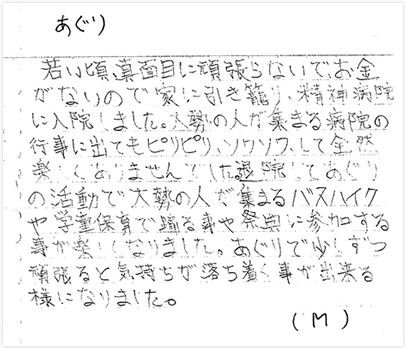 あぐり
若い頃真面目に頑張らないで、お金
がないので家に引き籠り、精神病院
に入院しました。大勢の人が集まる病院の
行事に出てもピリピリ、ソワソワして全然
楽しくありませんでした退院してあぐり
の活動で大勢の人が集まるバスハイク
や学童保育で踊る事や祭典に参加する
事が楽しくなりました。あぐりで少しずつ
頑張ると気持ちが落ち着く事が出来る
様になりました。
(M)